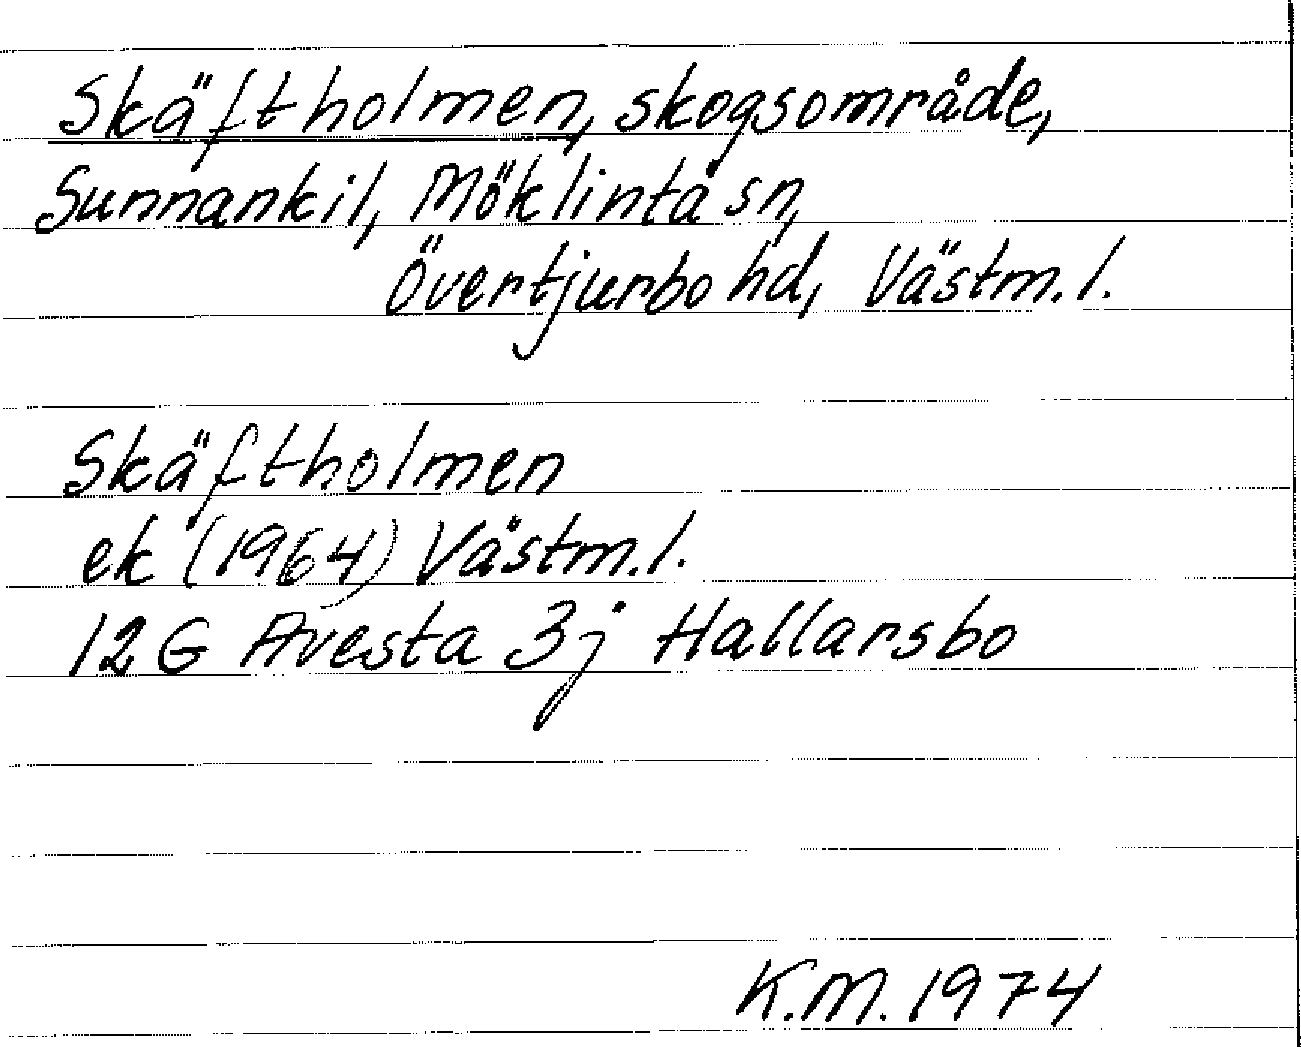 Skäftholmen, skogsområde,
Sunnankil, Möklinta sn,
Övertjurbo hd, Västm. l.
Skäftholmen
ek (1964) Västm. l.
12 G Avesta 3j Hallarsbo
K.M. 1974